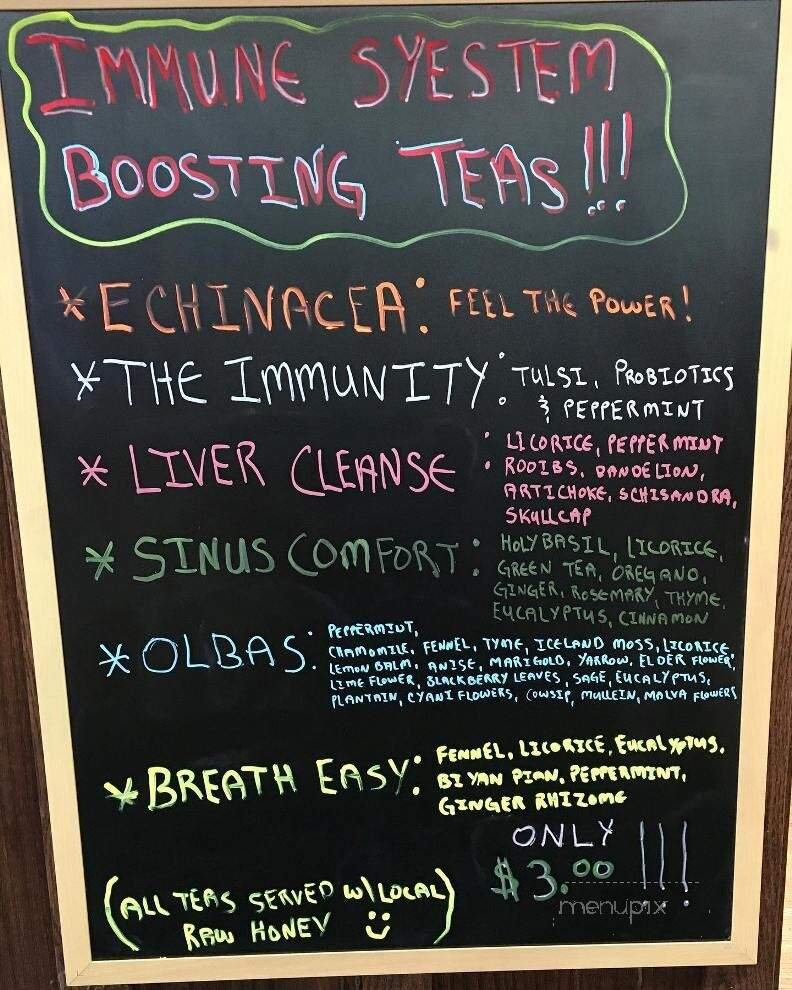 IMMUNE SYESTEM
BOOSTING TEAS!!!
*ECHINACEA: FEEL THE POWER!
*THE IMMUNITY: TULSI, PROBIOTICS
& PEPPERMINT
* LIVER CLEANSE : LICORICE, PEPPERMINT
ROOIBS, DANDELION,
ARTICHOKE, SCHISANDRA,
SKULLCAP
* SINUS COMFORT: HOLY BASIL, LICORICE,
GREEN TEA, OREGANO,
GINGER, ROSEMARY, THYME,
EUCALYPTUS, CINNAMON
*OLBAS: PEPPERMINT,
CHAMOMILE, FENNEL, TYME, ICELAND MOSS, LICORICE
LEMON BALM, ANISE, MARIGOLD, YARROW, ELDER FLOWER,
LIME FLOWER, BLACKBERRY LEAVES, SAGE, EUCALYPTUS,
PLANTAIN, CYANI FLOWERS, COWSIP, MULLEIN, MALVA FLOWERS
*BREATH EASY: FENNEL, LICORICE, EUCALYPTUS,
BI YAN PIAN, PEPPERMINT,
GINGER RHIZOME
ONLY
$3.00 !!!
(ALL TEAS SERVED W/LOCAL)
RAW HONEY
menupix